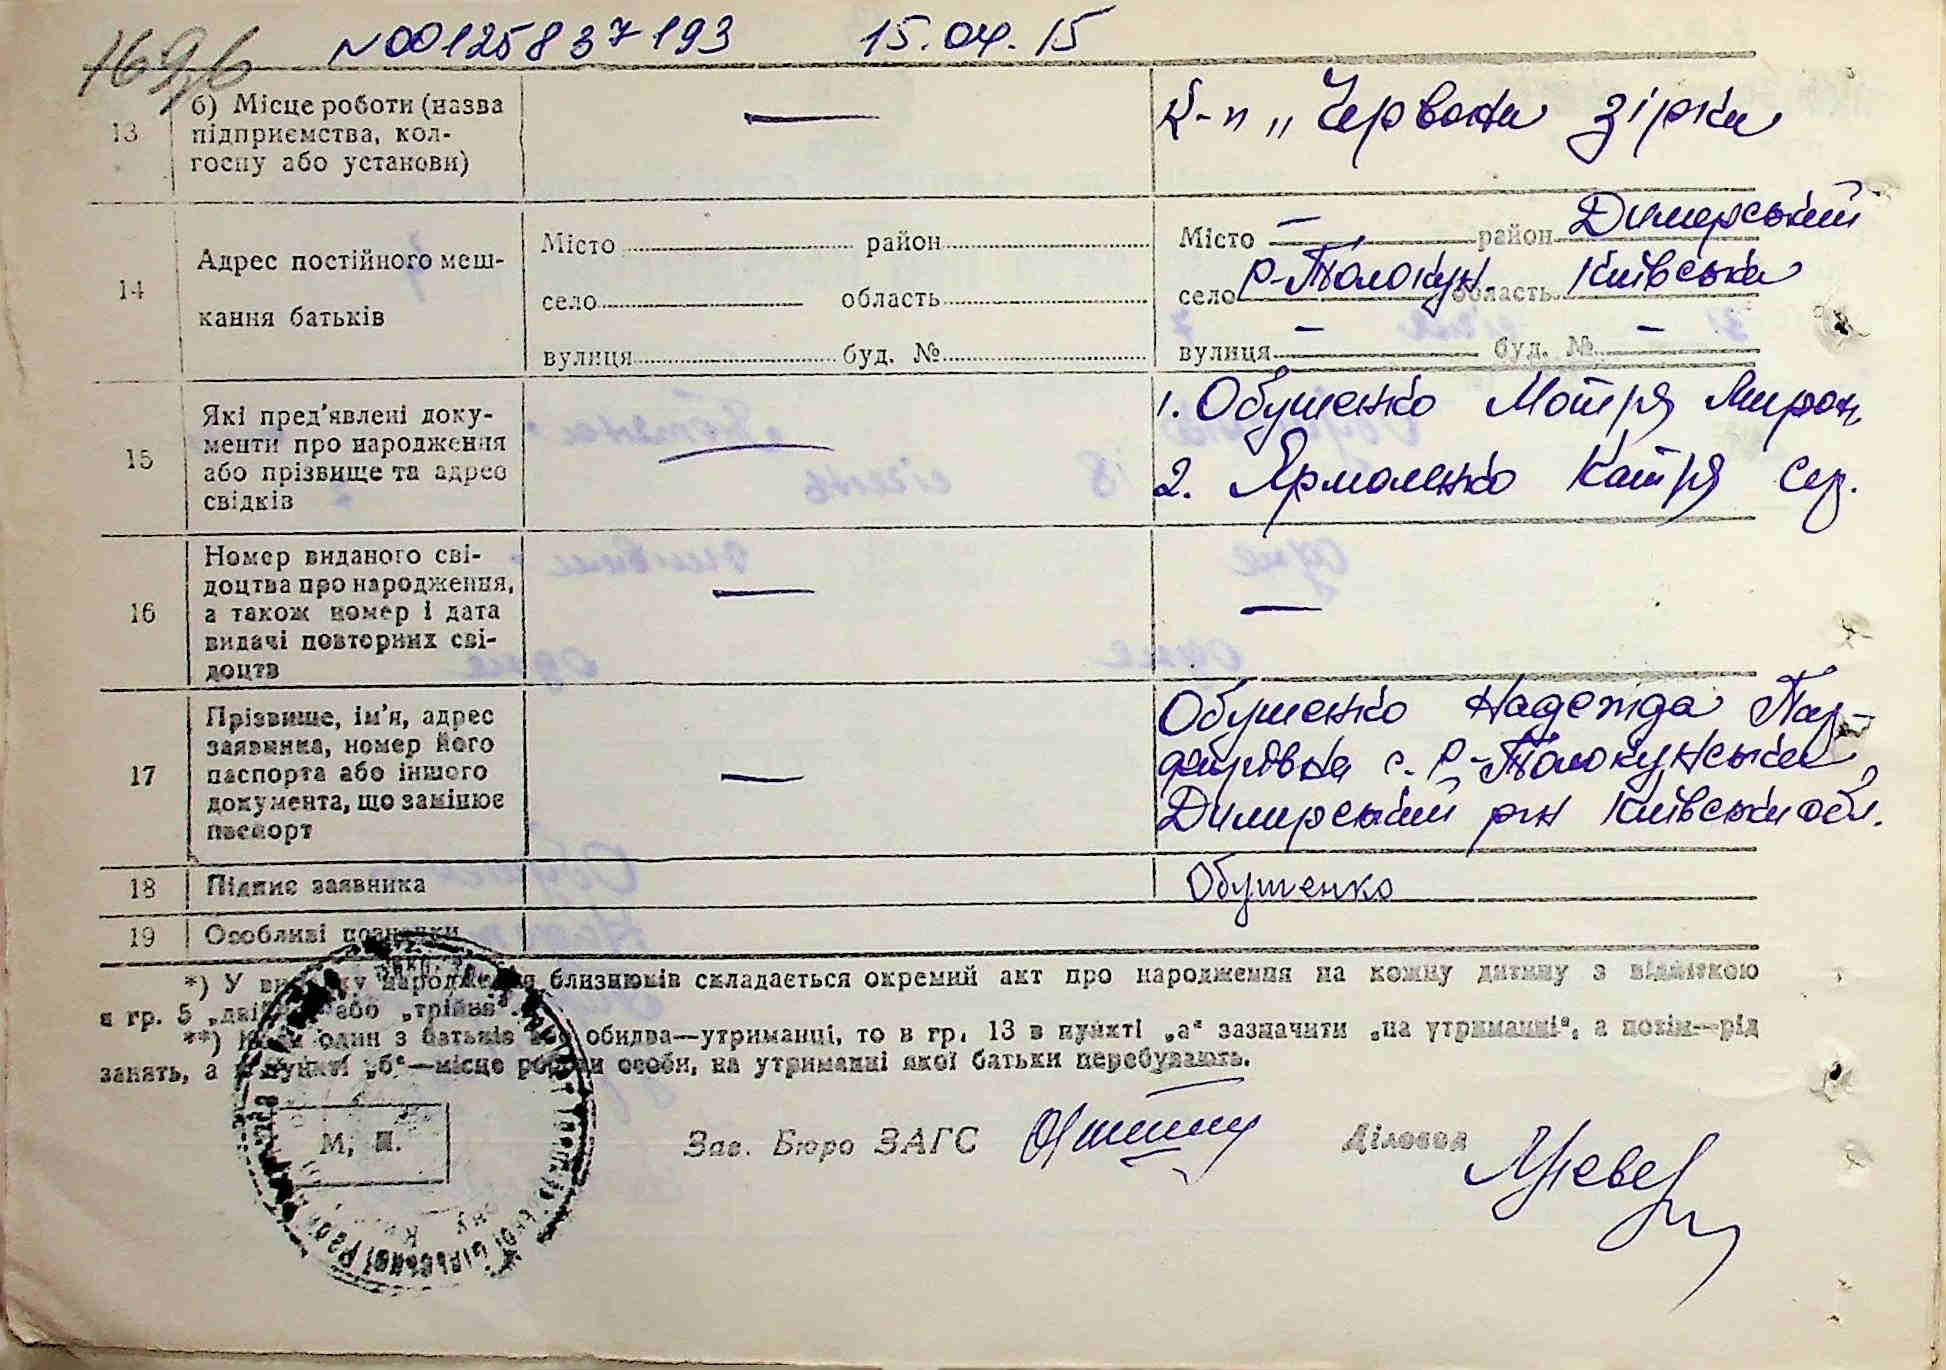 169б
N00125837193 15.04.15
13 б) Місце роботи (назва підприємства, колгоспу або установи) — К-п „Червона зірка
14 Адрес постійного мешкання батьків
Місто район Місто — район Димерський
село область село Р-Толокун. область Київська
вулиця буд. № вулиця — буд. № —
15 Які пред'явлені документи про народження або прізвище та адрес свідків — 1. Обушенко Мотря Мирон.
2. Ярмоленко Катря
16 Номер виданого свідоцтва про народження, а також номер і дата видачі повторних свідоцтв — —
17 Прізвише, ім'я, адрес заявника, номер його паспорта або іншого документа, що замінює паспорт — Обушенко Надежда
с. Р-Толокунська
Димерський р-н Київська обл.
18 Підпис заявника Обушенко
19 Особливі позначки
*) У випадку народження близнюків складається окремий акт про народження на кожну дитину з відміткою
в гр. 5 „двійня" або „трійня".
**) Коли один з батьків або обидва—утриманці, то в гр. 13 в пункті „а" зазначити „на утриманні", а потім—рід
занять, а в пункті „б"—місце роботи особи, на утриманні якої батьки перебувають.
М. П. Зав. Бюро ЗАГС Діловод